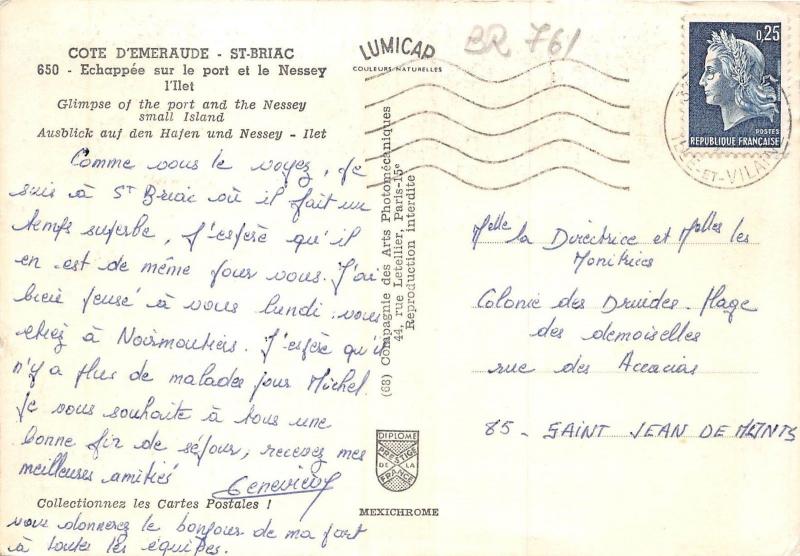 COTE D'EMERAUDE - ST-BRIAC
650 - Echappée sur le port et le Nessey
l'Ilet
Glimpse of the port and the Nessey
small Island
Ausblick auf den Hafen und Nessey - Ilet
Comme vous le voyez, je
suis à St Briac où il fait un
temps superbe, j'espère qu'il
en est de même pour vous. J'ai
bien pensé à vous lundi. vous
étiez à Noirmoutiers. J'espère qu'il
n'y a plus de malades pour Michel.
Je vous souhaite à tous une
bonne fin de séjour, recevez mes
meilleures amitiés Geneviève
Collectionnez les Cartes Postales !
vous donnerez le bonjour de ma part
à toutes les équipes.
LUMICAP
COULEURS NATURELLES
BR 761
(63) Compagnie des Arts Photomécaniques
44, rue Letellier, Paris-15e
Reproduction Interdite
DIPLOME
PRESTIGE
DE LA
FRANCE
MEXICHROME
0,25
POSTES
REPUBLIQUE FRANÇAISE
ILLE-ET-VILAINE
Melle la Directrice et Melles les
Monitrices
Colonie des Druides. Plage
des demoiselles
rue des Accacias
85 - SAINT JEAN DE MONTS